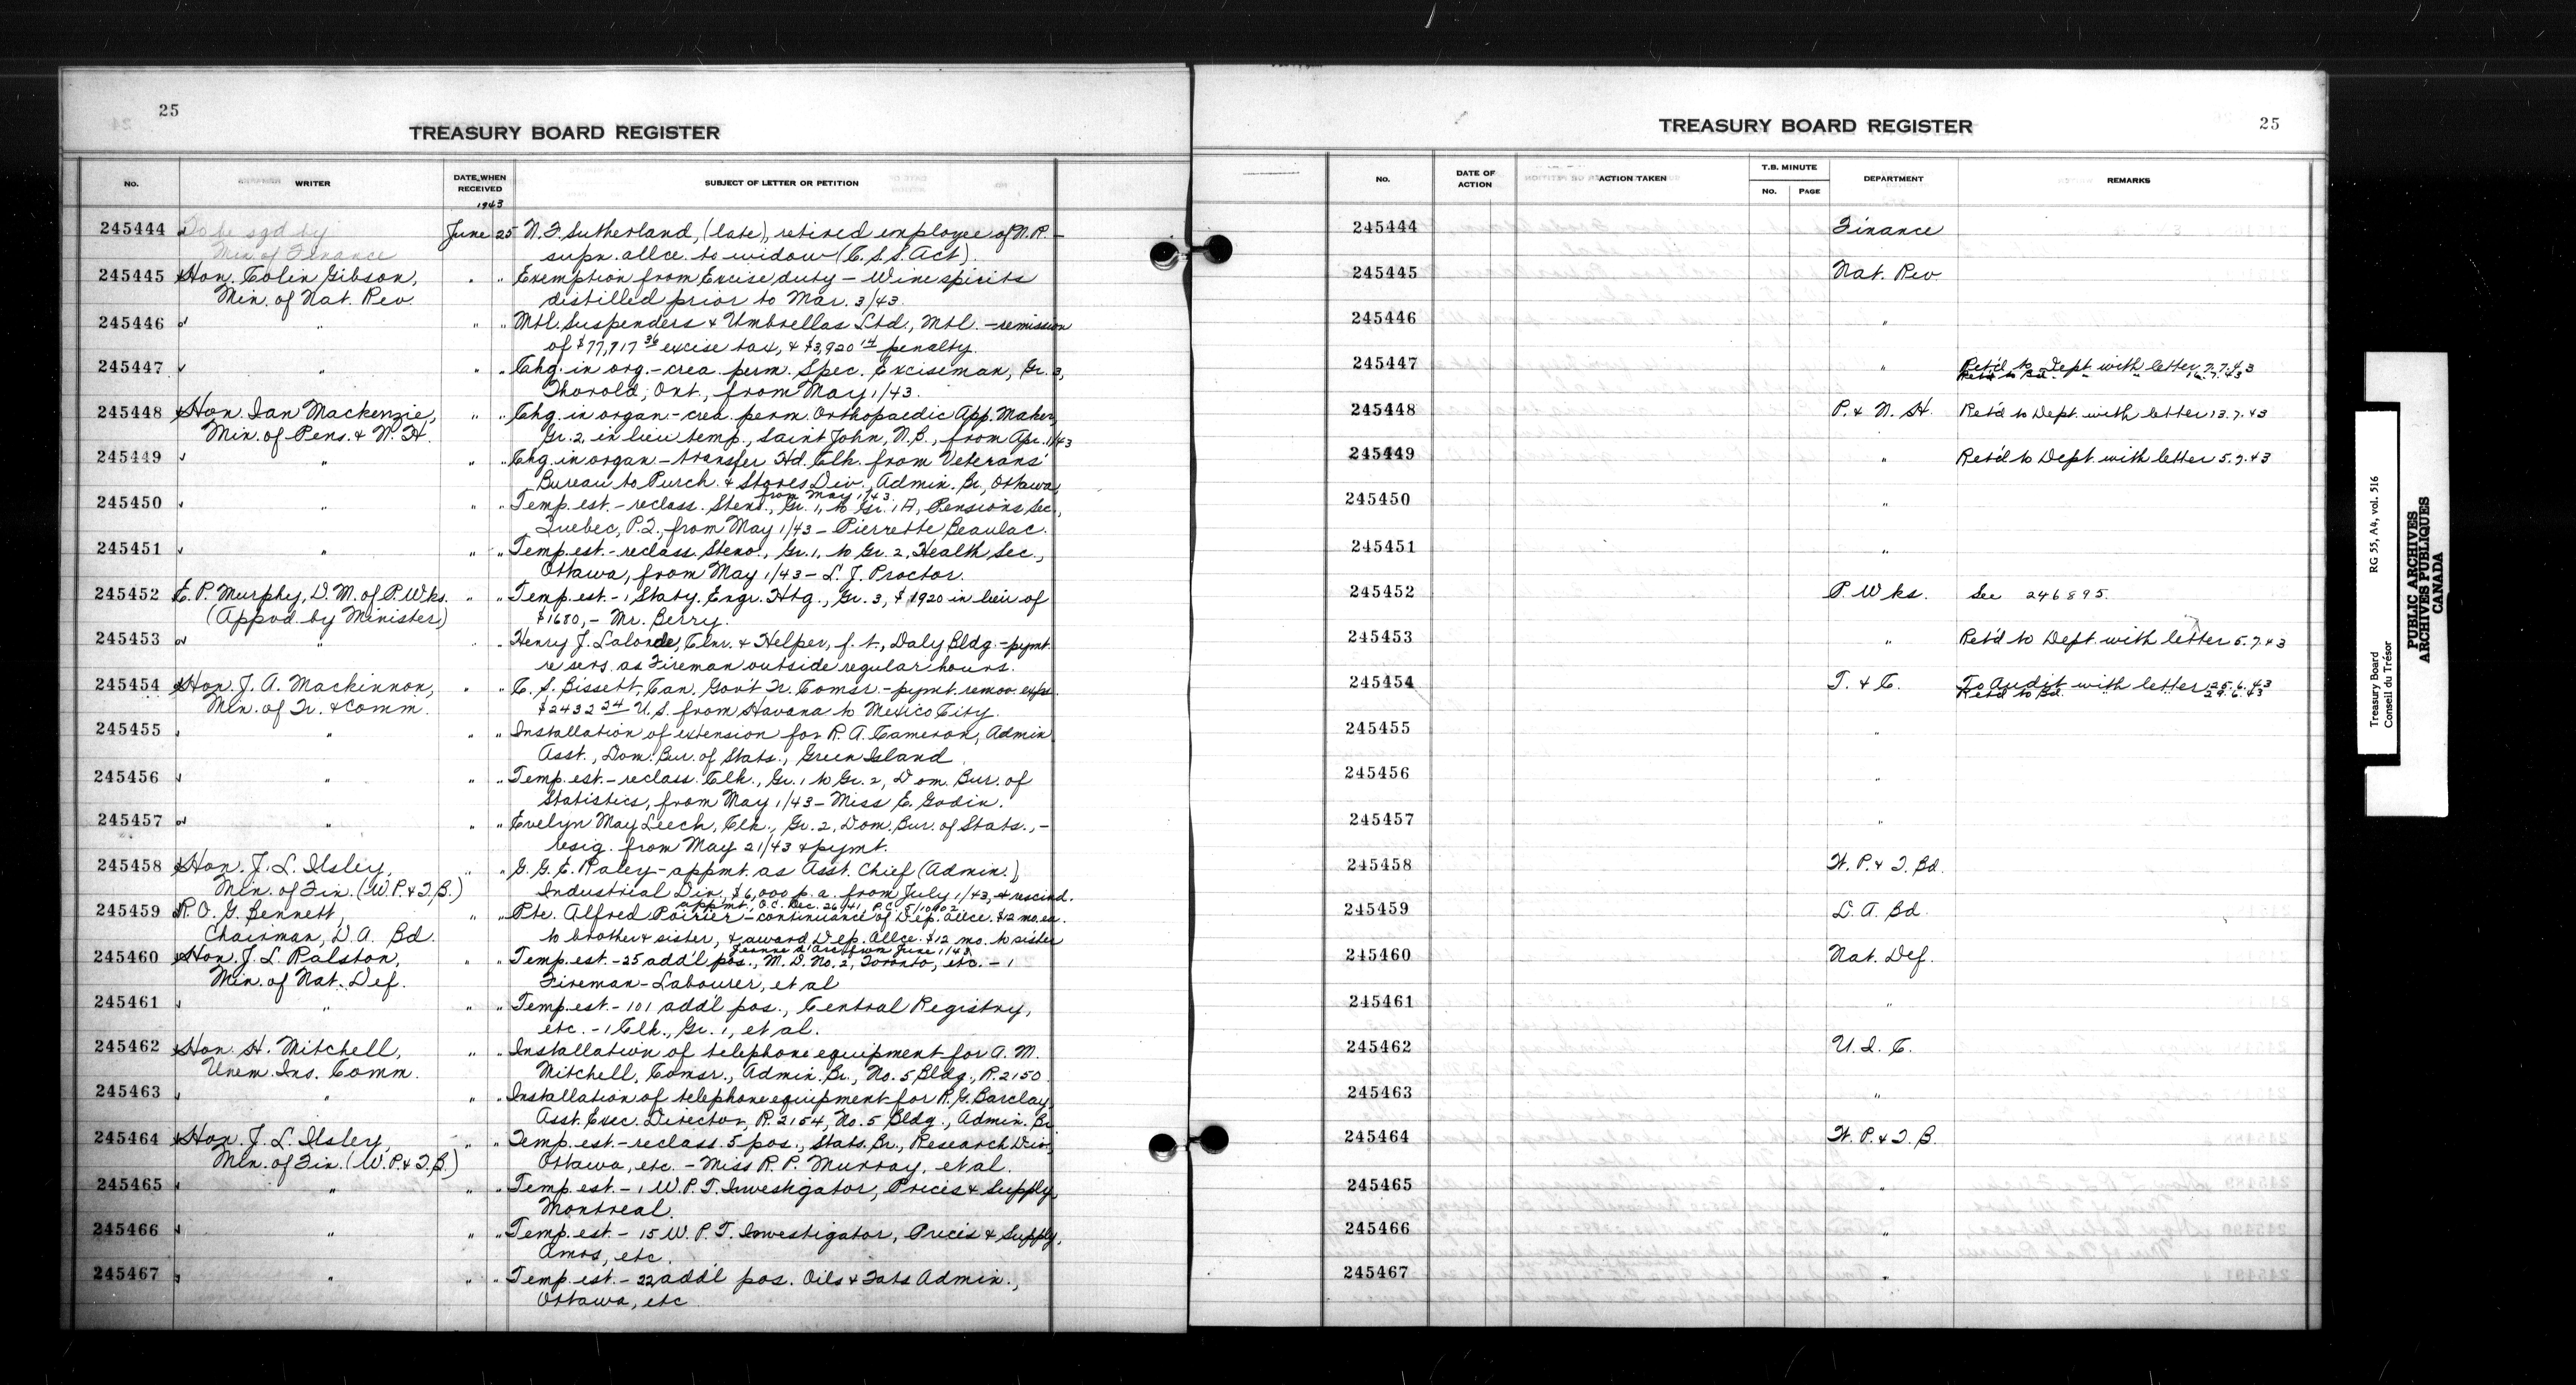 25
TREASURY BOARD REGISTER
NO. WRITER DATE WHEN RECEIVED SUBJECT OF LETTER OR PETITION
1943
245444 To be sgd by June 25 N. F. Sutherland, (late), retired employee of N.R. -
Min. of Finance supn. allce. to widow (C.S.S. Act)
245445 Hon. Colin Gibson, " " Exemption from Excise duty - Wine spirits
Min. of Nat. Rev. distilled prior to Mar. 3/43.
245446 " " " Mtl. Suspenders & Umbrellas Ltd., Mtl. - remission
of $77,717 36 excise tax, & $3,920 14 penalty.
245447 " " " Chg. in org. - crea. perm. Spec. Exciseman, Gr. 3,
Thorold, Ont., from May 1/43.
245448 Hon. Ian Mackenzie, " " Chg. in organ - crea. perm. Orthopaedic App. Maker,
Min. of Pens. & N. H. Gr. 2, in lieu temp., Saint John, N.B., from Apr. 1/43
245449 " " " Chg. in organ - transfer Hd. Clk. from Veterans'
Bureau to Purch. & Stores Div., Admin. Br., Ottawa,
from May 1/43.
245450 " " " Temp. est. - reclass. Steno., Gr. 1, to Gr. 1A, Pensions Sec.,
Quebec, P.Q., from May 1/43 - Pierrette Beaulac.
245451 " " " Temp. est. - reclass. Steno., Gr. 1, to Gr. 2, Health Sec.,
Ottawa, from May 1/43 - L. J. Proctor.
245452 E. P. Murphy, D. M. of P. Wks. " " Temp. est. - 1 Staty. Engr. Htg., Gr. 3, $1920 in lieu of
(Appvd. by Minister) $1680, - Mr. Berry.
245453 " " " Henry J. Lalonde, Clnr. & Helper, f. t., Daly Bldg. - pymt.
re servs. as Fireman outside regular hours.
245454 Hon. J. A. Mackinnon, " " C. S. Bissett, Can. Gov't Tr. Comsr. - pymt. remov. exps.
Min. of Tr. & Comm. $2432 24 U.S. from Havana to Mexico City.
245455 " " " Installation of extension for R. A. Cameron, Admin.
Asst., Dom. Bur. of Stats., Green Island
245456 " " " Temp. est. - reclass. Clk., Gr. 1 to Gr. 2, Dom. Bur. of
Statistics, from May 1/43 - Miss E. Godin.
245457 " " " Evelyn May Leech, Clk., Gr. 2, Dom. Bur. of Stats., -
resig. from May 21/43 & pymt.
245458 Hon. J. L. Ilsley, " " G. G. E. Raley - appmt. as Asst. Chief (Admin.)
Min. of Fin. (W.P. & T.B.) Industrial Div. $6,000 p. a. from July 1/43, & rescind.
appmt., O.C. Dec. 26/41, P.C. 5/10102
245459 R. O. G. Bennett, " " Pte. Alfred Poirier - continuance of Dep. allce. $12 mo. ea.
Chairman, D.A. Bd. to brother & sister, & award Dep. Allce. $12 mo. to sister
Jeanne d'Arc from June 1/43
245460 Hon. J. L. Ralston, " " Temp. est. - 25 add'l pos., M. D. No. 2, Toronto, etc. - 1
Min. of Nat. Def. Fireman-Labourer, et al
245461 " " " Temp. est. - 101 add'l pos., Central Registry,
etc. - 1 Clk., Gr. 1, et al.
245462 Hon. H. Mitchell, " " Installation of telephone equipment for A. M.
Unem. Ins. Comm. Mitchell, Comsr., Admin. Br., No. 5 Bldg., R. 2150
245463 " " " Installation of telephone equipment for R. G. Barclay,
Asst. Exec. Director, R. 2154, No. 5 Bldg., Admin. Br.
245464 Hon. J. L. Ilsley, " " Temp. est. - reclass. 5 pos., Stats. Br., Research Div.,
Min. of Fin. (W.P. & T.B.) Ottawa, etc. - Miss R. P. Murray, et al.
245465 " " " Temp. est. - 1 W. P. T. Investigator, Prices & Supply,
Montreal.
245466 " " " Temp. est. - 15 W. P. T. Investigator, Prices & Supply,
Amos, etc.
245467 " " " Temp. est. - 22 add'l pos. Oils & Fats Admin.,
Ottawa, etc
TREASURY BOARD REGISTER 25
NO. DATE OF ACTION ACTION TAKEN T.B. MINUTE NO. PAGE DEPARTMENT REMARKS
245444 Finance
245445 Nat. Rev.
245446 "
245447 " Ret'd to Dept. with letter 7.7.43
Ret'd to Bd. " " 16.7.43
245448 P. & N. H. Ret'd to Dept. with letter 13.7.43
245449 " Ret'd to Dept. with letter 5.7.43
245450 "
245451 "
245452 P. Wks. See 246895.
245453 " Ret'd to Dept. with letter 5.7.43
245454 T. & C. To Audit with letter 25.6.43
Ret'd to Bd. 29.6.43
245455 "
245456 "
245457 "
245458 W. P. & T. Bd.
245459 D. A. Bd.
245460 Nat. Def.
245461 "
245462 U. I. C.
245463 "
245464 W. P. & T. B.
245465 "
245466 "
245467 "
Treasury Board RG 55, A4, vol. 516
Conseil du Trésor
PUBLIC ARCHIVES
ARCHIVES PUBLIQUES
CANADA